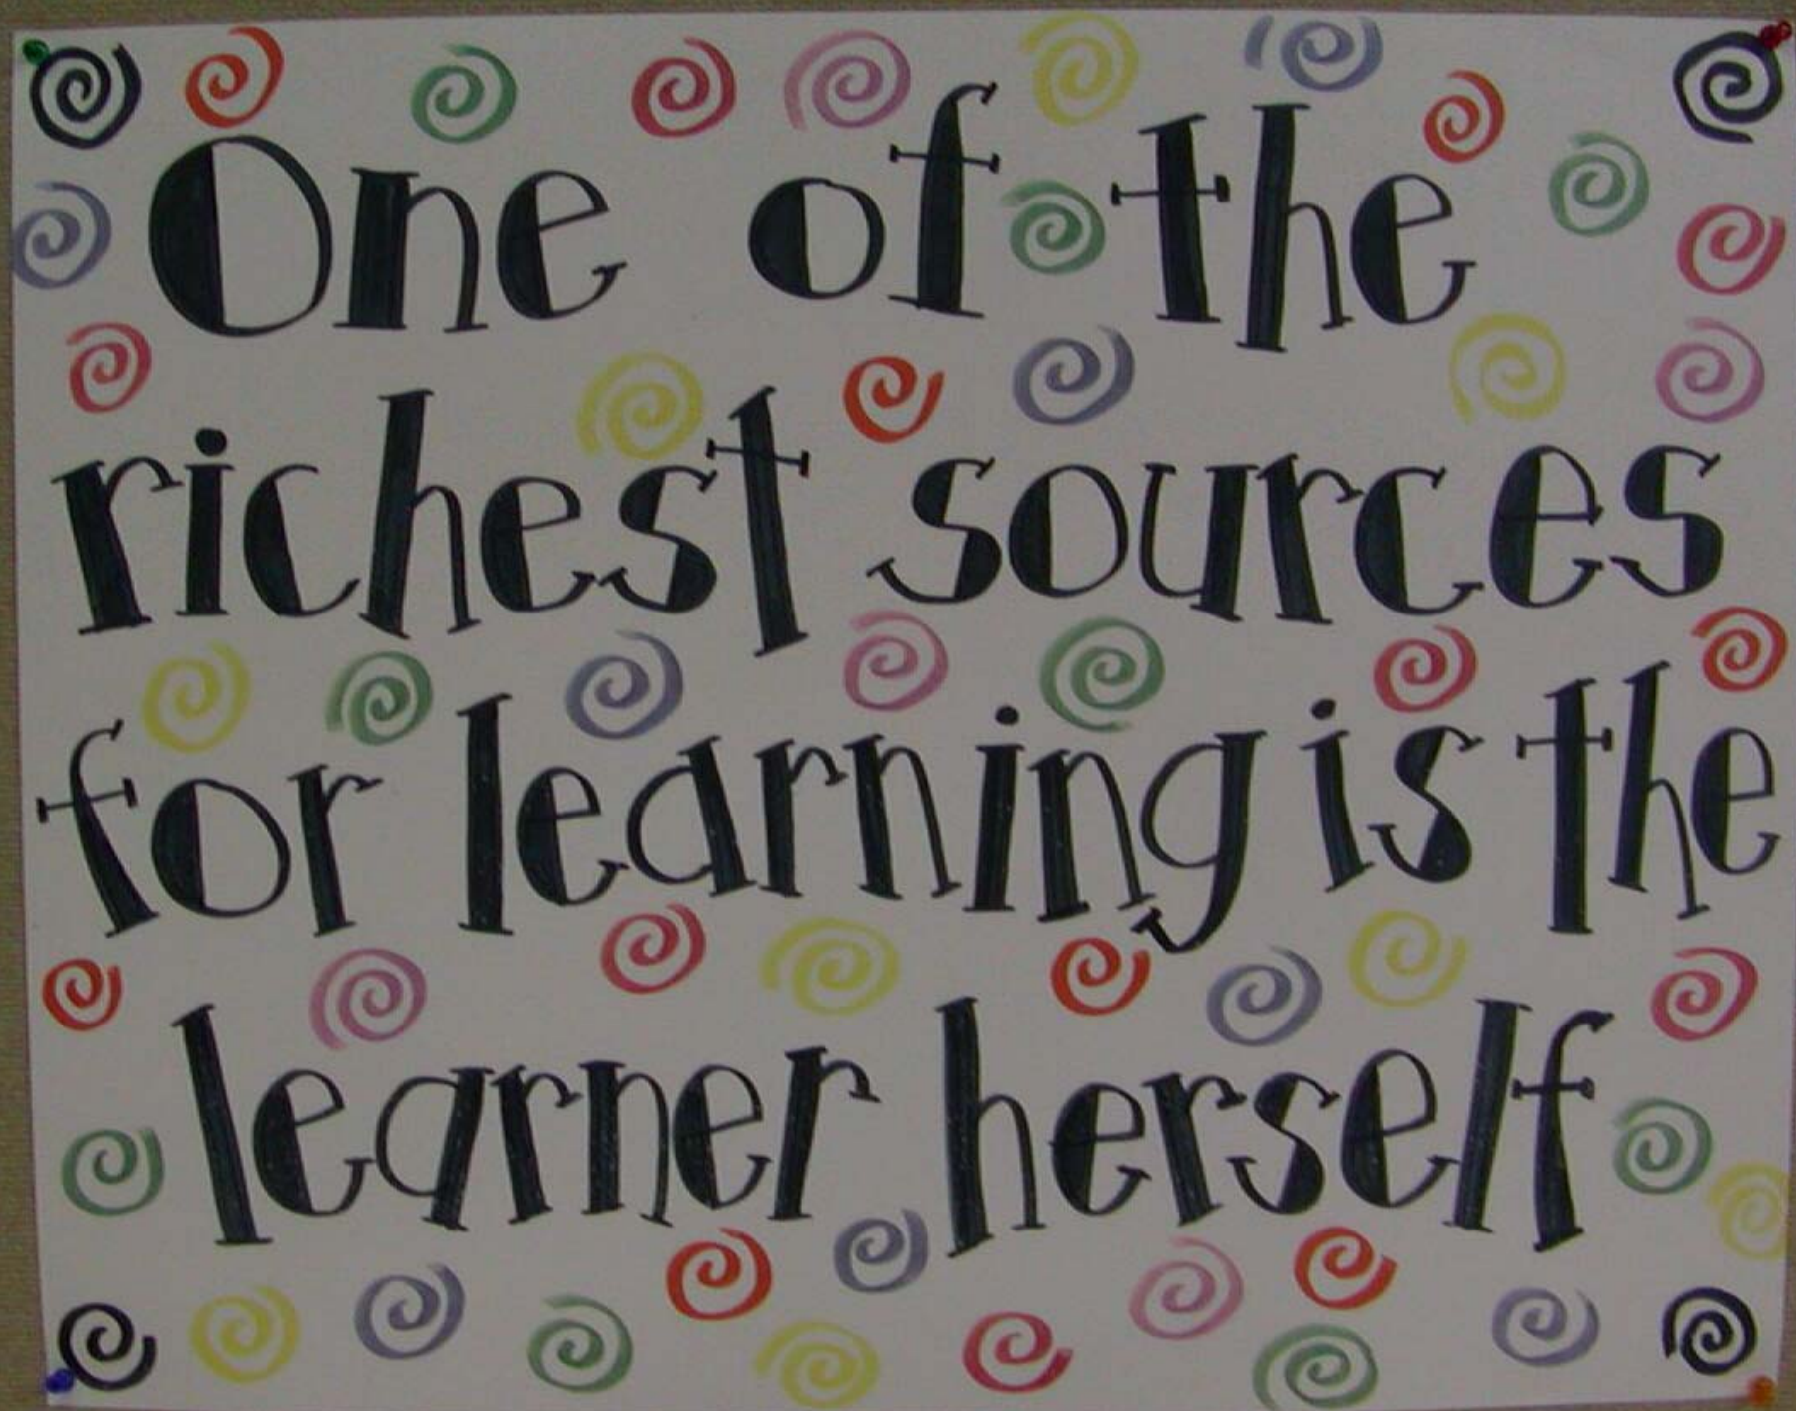 One of the
richest sources
for learning is the
learner herself